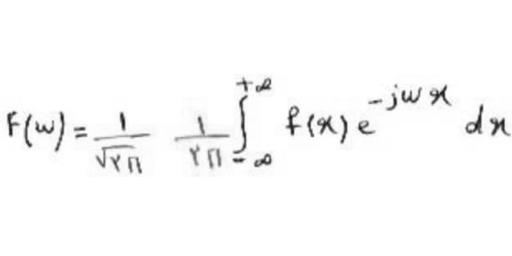 F(w) = 1/√۲π 1/۲π ∫_{-∞}^{+∞} f(x) e^{-jwx} dx